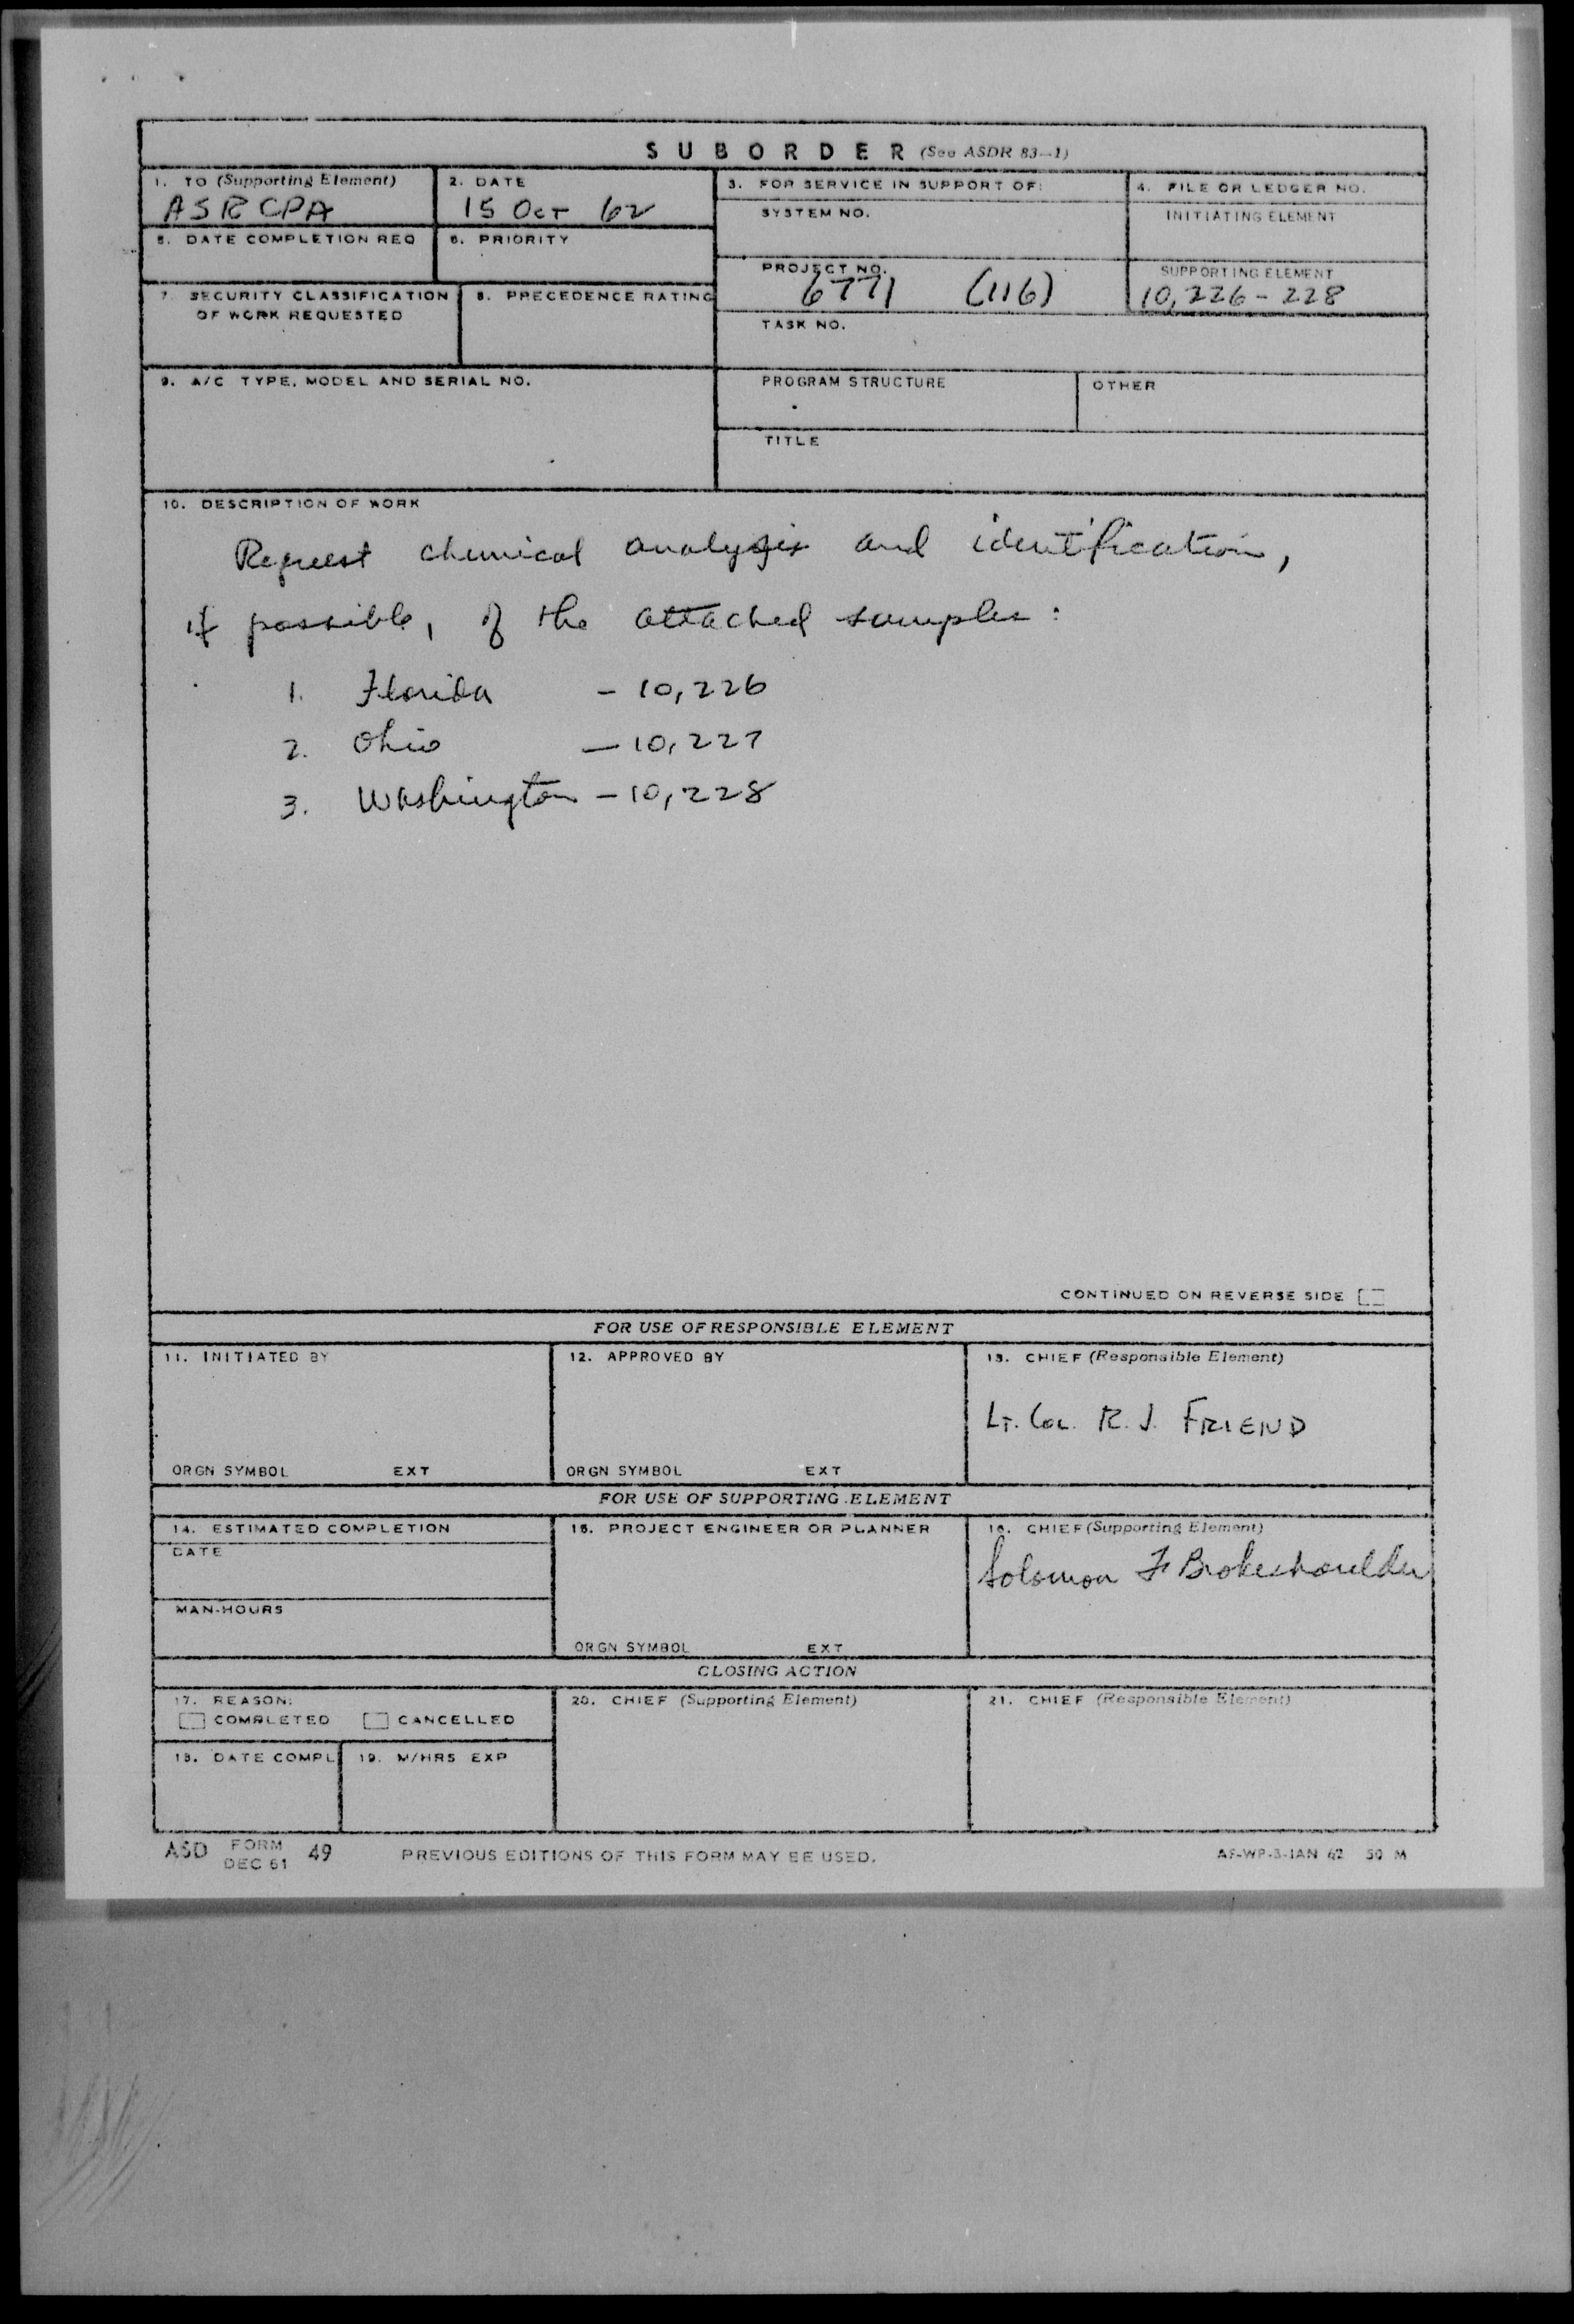 SUBORDER (See ASDR 83-1)
1. TO (Supporting Element)
ASRCPA
2. DATE
15 Oct 62
3. FOR SERVICE IN SUPPORT OF:
SYSTEM NO.
4. FILE OR LEDGER NO.
INITIATING ELEMENT
5. DATE COMPLETION REQ
6. PRIORITY
PROJECT NO.
6771 (116)
SUPPORTING ELEMENT
10,226-228
7. SECURITY CLASSIFICATION
OF WORK REQUESTED
8. PRECEDENCE RATING
TASK NO.
9. A/C TYPE, MODEL AND SERIAL NO.
PROGRAM STRUCTURE
OTHER
TITLE
10. DESCRIPTION OF WORK
Request chemical analysis and identification,
if possible, of the attached samples:
1. Florida - 10,226
2. Ohio - 10,227
3. Washington - 10,228
CONTINUED ON REVERSE SIDE
FOR USE OF RESPONSIBLE ELEMENT
11. INITIATED BY
12. APPROVED BY
13. CHIEF (Responsible Element)
Lt. Col. R. J. FRIEND
ORGN SYMBOL EXT
ORGN SYMBOL EXT
FOR USE OF SUPPORTING ELEMENT
14. ESTIMATED COMPLETION
DATE
15. PROJECT ENGINEER OR PLANNER
16. CHIEF (Supporting Element)
Solomon F Brokeshoulder
MAN-HOURS
ORGN SYMBOL EXT
CLOSING ACTION
17. REASON:
COMPLETED CANCELLED
20. CHIEF (Supporting Element)
21. CHIEF (Responsible Element)
18. DATE COMPL
19. M/HRS EXP
ASD FORM DEC 61 49
PREVIOUS EDITIONS OF THIS FORM MAY BE USED.
AF-WP-B-JAN 62 50 M